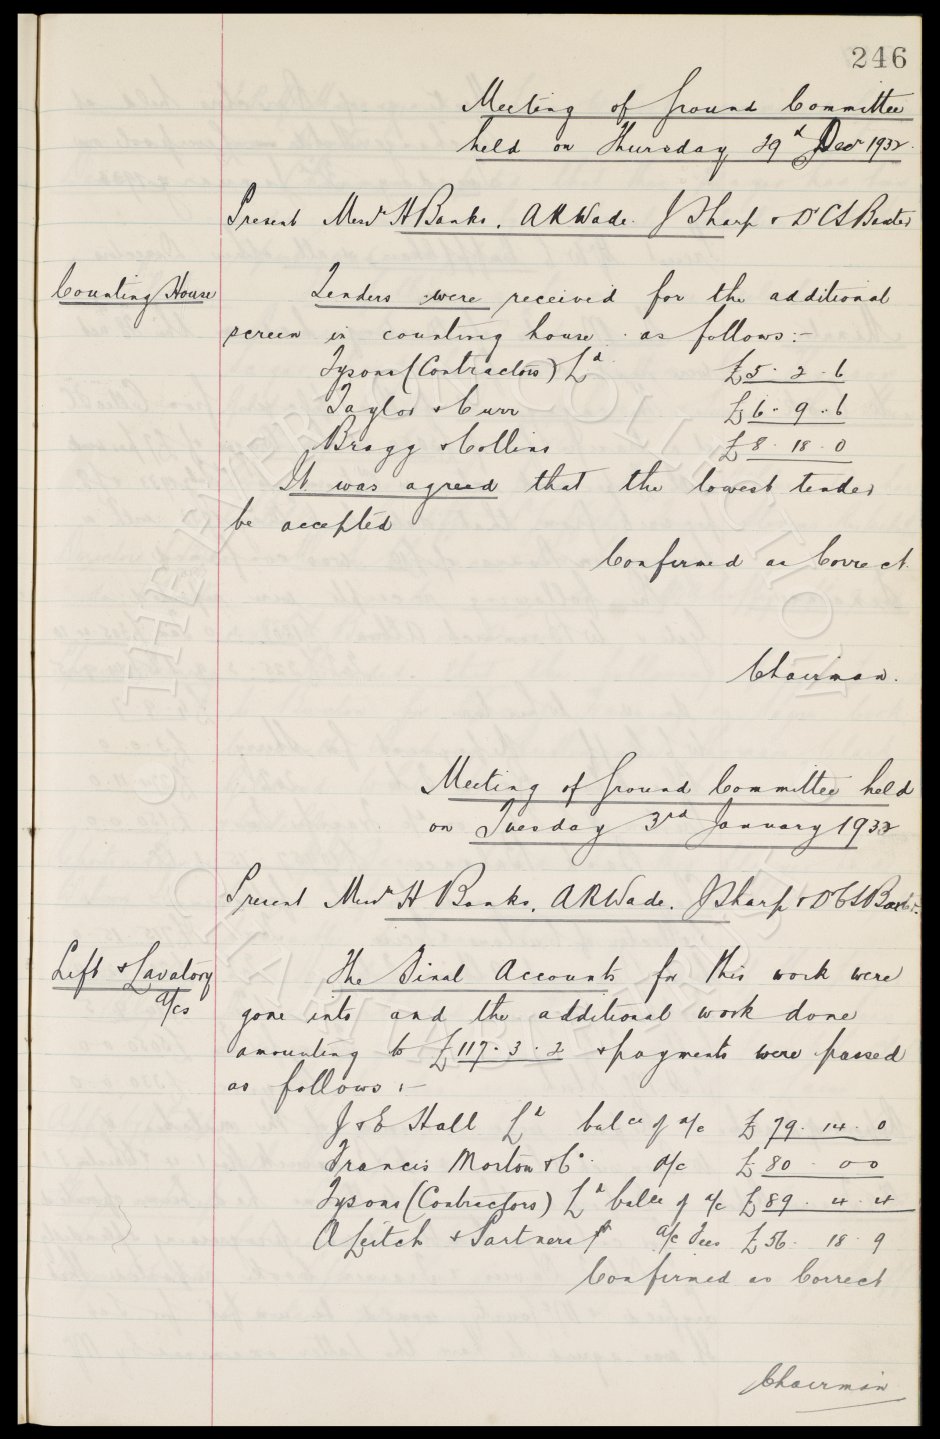 246
Meeting of Ground Committee
held on Thursday 29th Decr 1932.
Present Messrs H Banks, A R Wade. J Sharp & Dr C S Baxter
Counting House
Tenders were received for the additional
screen in counting house as follows:-
Tysons (Contractors) Ld £5. 2. 6
Taylor & Curr £6. 9. 6
Bragg & Collins £8. 18. 0
It was agreed that the lowest tender
be accepted
Confirmed as Correct.
Chairman.
Meeting of Ground Committee held
on Tuesday 3rd January 1932
Present Messrs H Banks, A R Wade. J Sharp & Dr C S Baxter.
Lift & Lavatory
a/cs
The Final Accounts for this work were
gone into and the additional work done
amounting to £117. 3. 2 & payments were passed
as follows:-
J & E Hall Ld balce of a/c £79. 14. 0
Francis Morton & Co. a/c £80. 0 0
Tysons (Contractors) Ld balce of a/c £89. 4. 4
A Leitch & Partners a/c Fees £56. 18. 9
Confirmed as Correct
Chairman